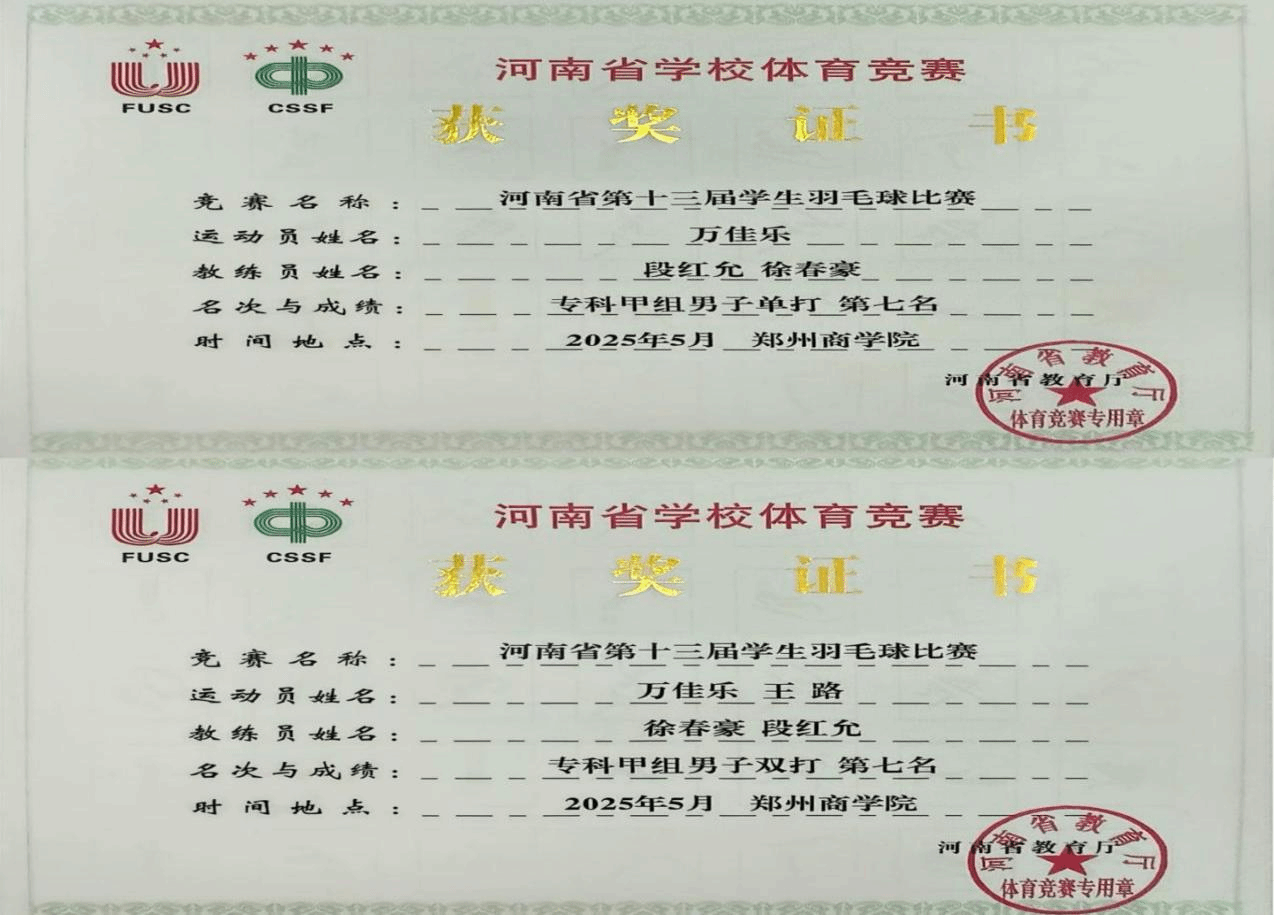 FUSC CSSF
河南省学校体育竞赛
获奖证书
竞赛名称：河南省第十三届学生羽毛球比赛
运动员姓名：万佳乐
教练员姓名：段红允 徐春豪
名次与成绩：专科甲组男子单打 第七名
时间地点：2025年5月 郑州商学院
河南省教育厅
河南省教育厅
体育竞赛专用章
FUSC CSSF
河南省学校体育竞赛
获奖证书
竞赛名称：河南省第十三届学生羽毛球比赛
运动员姓名：万佳乐 王 路
教练员姓名：徐春豪 段红允
名次与成绩：专科甲组男子双打 第七名
时间地点：2025年5月 郑州商学院
河南省教育厅
河南省教育厅
体育竞赛专用章